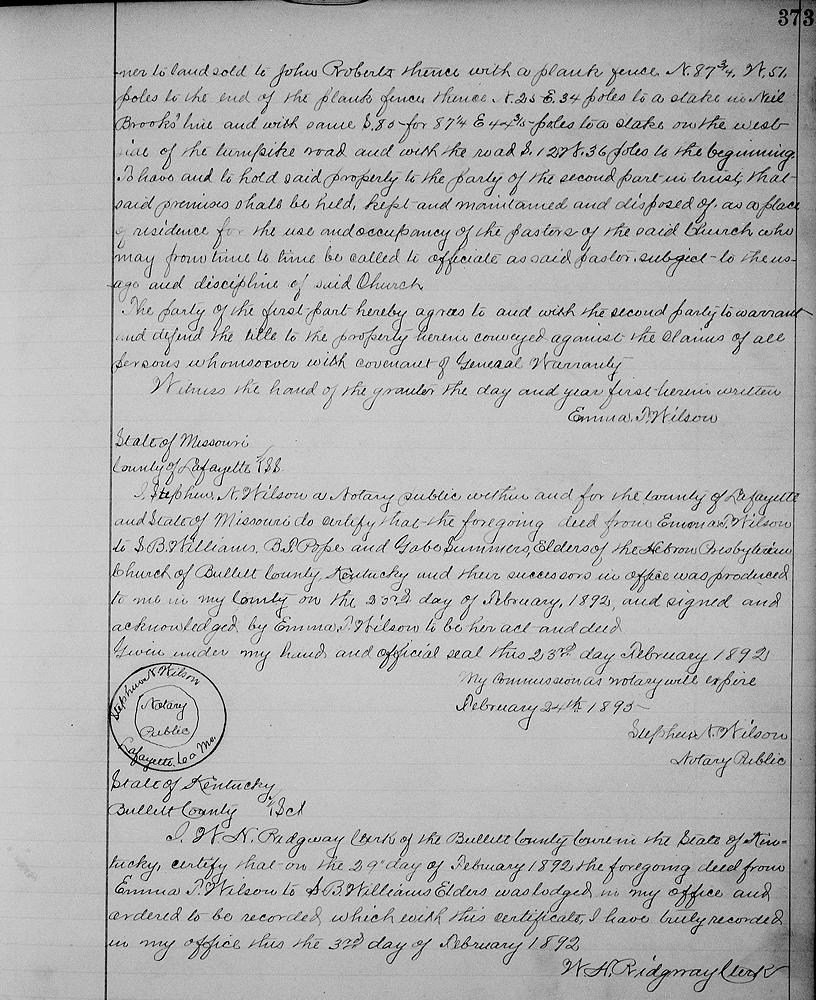 373
ner to land sold to John Roberts thence with a plank fence N. 87 3/4, W. 51,
poles to the end of the plank fence thence N. 25 E. 34 poles to a stake in Neil
Brooks' line and with same S. 85 for 87 1/4 E 44 3/5 poles to a stake on the west
side of the turnpike road and with the road S. 12 W. 36 poles to the beginning.
To have and to hold said property to the party of the second part in trust, that
said premises shall be held, kept and maintained and disposed of, as a place
of residence for the use and occupancy of the pastors of the said Church who
may from time to time be called to officiate as said pastor, subject to the us-
age and discipline of said Church
The party of the first part hereby agrees to and with the second party to warrant
and defend the title to the property herein conveyed against the claims of all
persons whomsoever with covenant of General Warranty
Witness the hand of the grantor the day and year first herein written
Emma T. Wilson
State of Missouri
County of Lafayette } SS.
I, Stephen N. Wilson a Notary public within and for the County of Lafayette
and State of Missouri do certify that the foregoing deed from Emma T. Wilson
to S B. Williams, B. T. Pope and Gabe Summers, Elders of the Hebron Presbyterian
Church of Bullitt County, Kentucky and their successors in office was produced
to me in my County on the 23rd day of February, 1892, and signed and
acknowledged by Emma T. Wilson to be her act and deed
Given under my hand and official seal this 23rd day February 1892
My commission as notary will expire
February 24th 1895
Stephen N. Wilson
Notary Public
Stephen N. Wilson
Notary
Public
Lafayette Co Mo.
State of Kentucky
Bullitt County } Sct
I, W. H. Ridgway Clerk of the Bullitt County Court in the State of Ken-
tucky, certify that on the 29" day of February 1892 the foregoing deed from
Emma T. Wilson to S. B. Williams Elders was lodged in my office and
ordered to be recorded which with this certificate, I have truly recorded
in my office this the 3rd day of February 1892
W. H. Ridgway Clerk